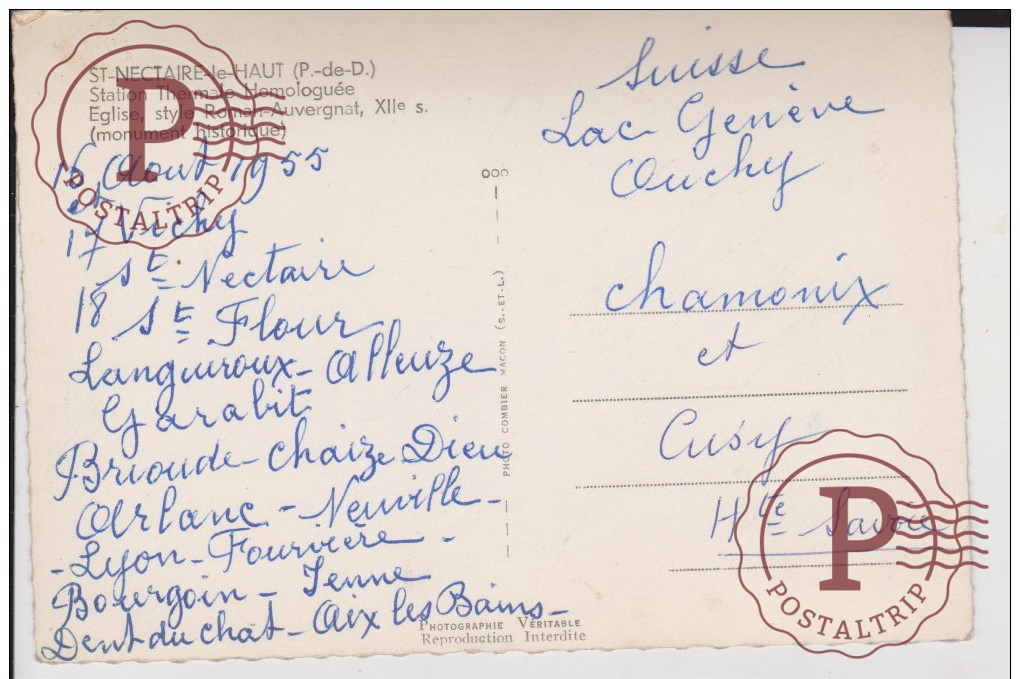 ST-NECTAIRE-le-HAUT (P.-de-D.)
Station Thermale Homologuée
Eglise, style Roman-Auvergnat, XIIe s.
(monument historique)
16 Aout 1955
17 Vichy
St Nectaire
18 St Flour
Languiroux - Alleuze
Garabit
Brioude - Chaize Dieu
Arlanc - Neuville -
- Lyon - Fourvière -
Bourgoin - Yenne
Dent du chat - Aix les Bains -
PHOTOGRAPHIE VÉRITABLE
Reproduction Interdite
PHOTO COMBIER MACON (S.-ET-L.)
Suisse
Lac Genève
Ouchy
chamonix
et
Cusy
Hte Savoie
P
POSTALTRIP
P
POSTALTRIP